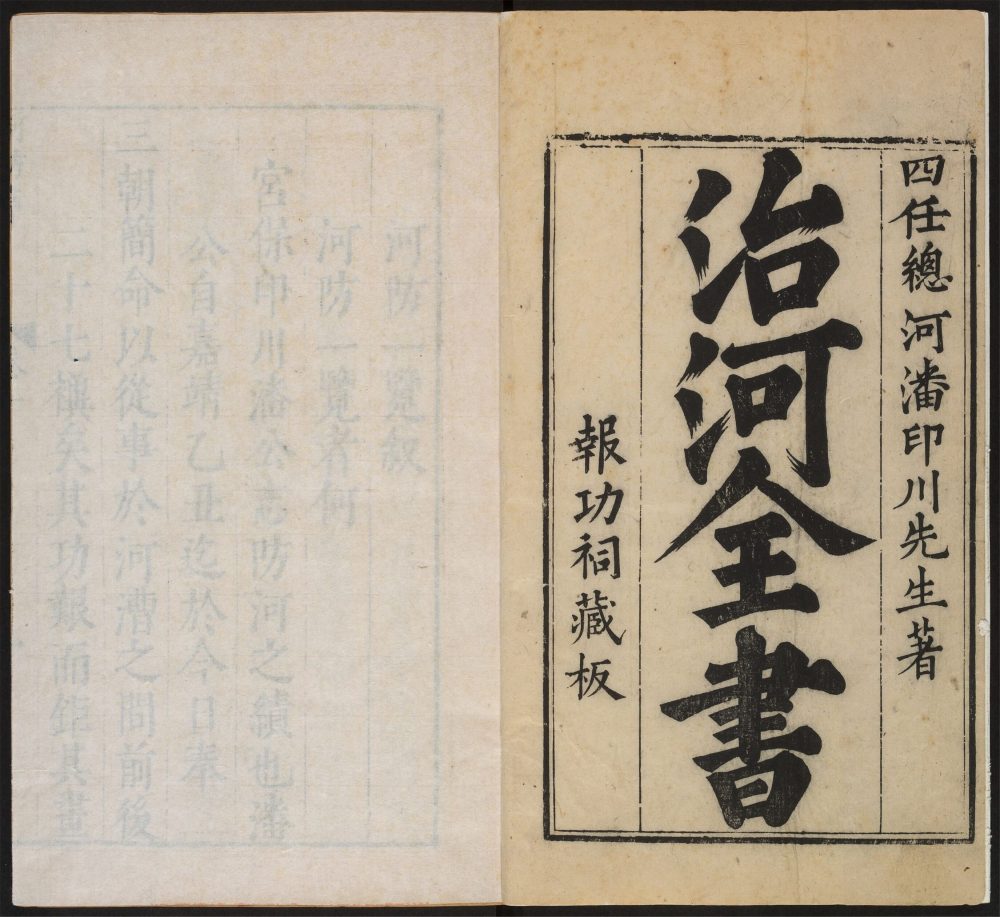 四任總河潘印川先生著
治河全書
報功祠藏板
河防一覽叙
河防一覽者何
宮保印川潘公志防河之績也潘
公自嘉靖乙丑迄於今日奉
三朝簡命以從事於河漕之間前後
二十七禩矣其功艱而鉅其畫